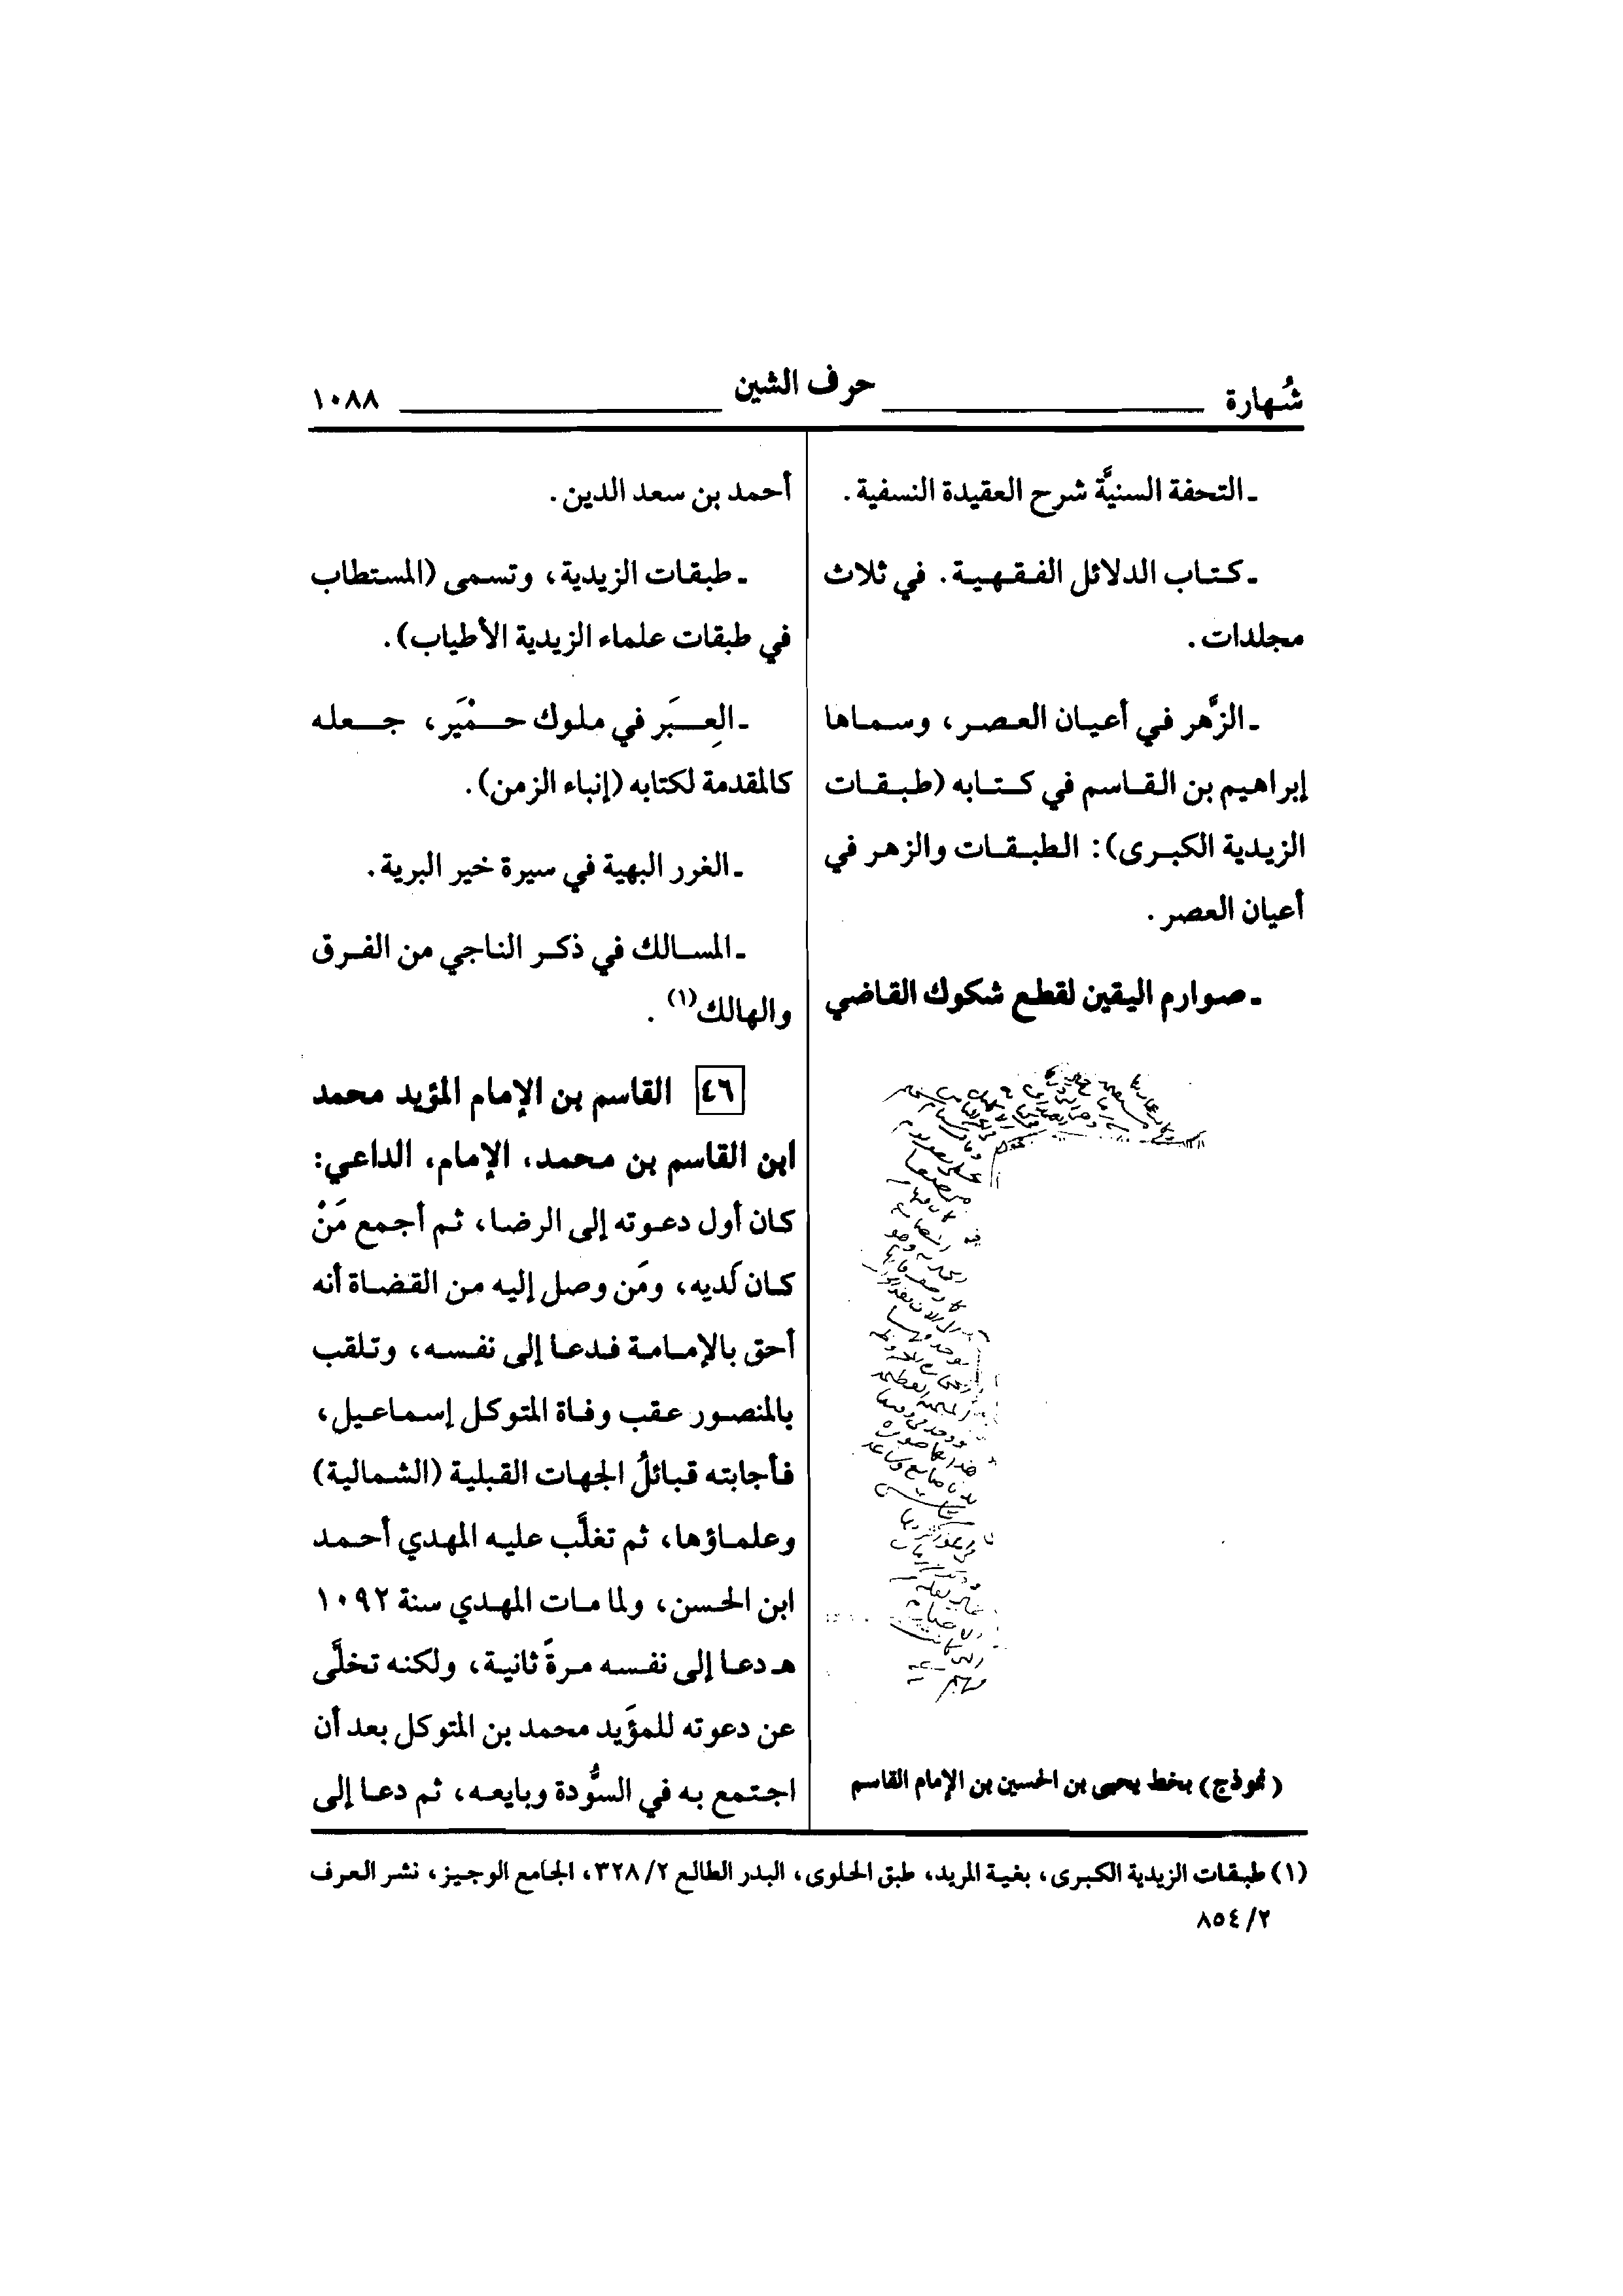 شُهارة حرف الشين ١٠٨٨
ـ التحفة السنيَّة شرح العقيدة النسفية.
ـ كتاب الدلائل الفقهية. في ثلاث
مجلدات.
ـ الزَّهر في أعيان العصر، وسماها
إبراهيم بن القاسم في كتابه (طبقات
الزيدية الكبرى): الطبقات والزهر في
أعيان العصر.
ـ صوارم اليقين لقطع شكوك القاضي
(نموذج) بخط يحيى بن الحسين بن الإمام القاسم
أحمد بن سعد الدين.
ـ طبقات الزيدية، وتسمى (المستطاب
في طبقات علماء الزيدية الأطياب).
ـ العِبَر في ملوك حمْيَر، جعله
كالمقدمة لكتابه (إنباء الزمن).
ـ الغرر البهية في سيرة خير البرية.
ـ المسالك في ذكر الناجي من الفرق
والهالك(١).
٤٦ القاسم بن الإمام المؤيد محمد
ابن القاسم بن محمد، الإمام، الداعي:
كان أول دعوته إلى الرضا، ثم أجمع مَنْ
كان لَديه، ومَن وصل إليه من القضاة أنه
أحق بالإمامة فدعا إلى نفسه، وتلقب
بالمنصور عقب وفاة المتوكل إسماعيل،
فأجابته قبائلُ الجهات القبلية (الشمالية)
وعلماؤها، ثم تغلَّب عليه المهدي أحمد
ابن الحسن، ولما مات المهدي سنة ١٠٩٢
هـ دعا إلى نفسه مرةً ثانية، ولكنه تخلَّى
عن دعوته للمؤَيد محمد بن المتوكل بعد أن
اجتمع به في السُّودة وبايعه، ثم دعا إلى
(١) طبقات الزيدية الكبرى، بغية المريد، طبق الحلوى، البدر الطالع ٢/ ٣٢٨، الجامع الوجيز، نشر العرف
٢/ ٨٥٤